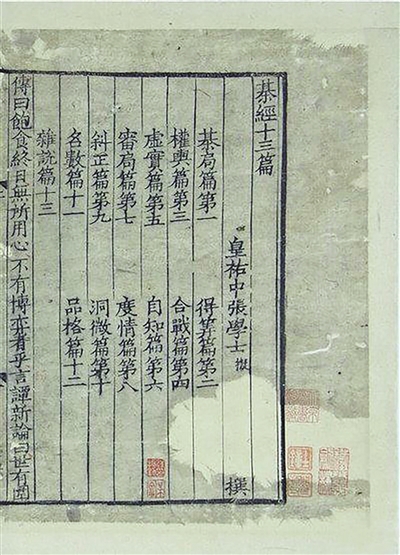 棊經十三篇
皇祐中張學士擬　撰
棊局篇第一　得算篇第二
權輿篇第三　合戰篇第四
虛實篇第五　自知篇第六
審局篇第七　度情篇第八
斜正篇第九　洞微篇第十
名數篇十一　品格篇十二
雜說篇十三
傳曰飽食終日無所用心不有博弈者乎言譚新論曰世有圍